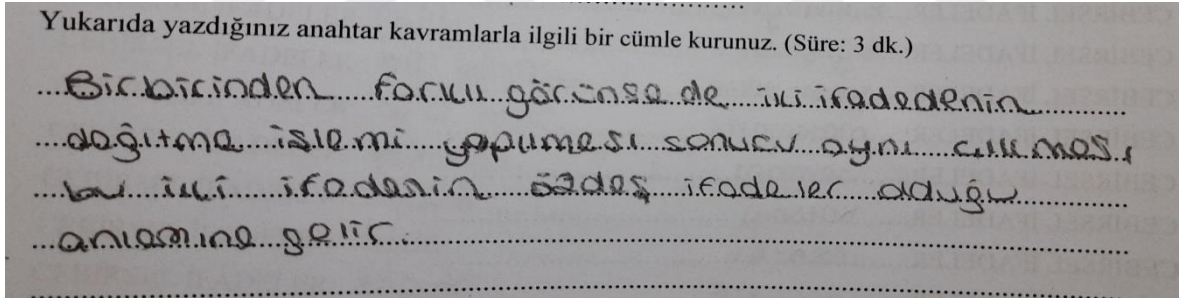 Yukarıda yazdığınız anahtar kavramlarla ilgili bir cümle kurunuz. (Süre: 3 dk.)
Birbirinden farklı görünse de iki ifadedenin
dağıtma işlemi yapılması sonucu aynı çıkması
bu iki ifadenin özdeş ifadeler olduğu
anlamına gelir.